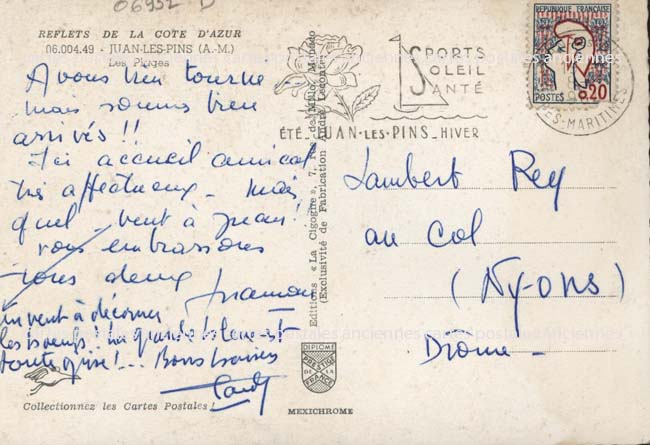 06952 D
REFLETS DE LA COTE D'AZUR
06.004.49 - JUAN-LES-PINS (A.-M.)
Les Plages
A vous bien tourne
mais sommes bien
arrivés !!
Ici accueil amical
très affectueux. Mais
quel vent à Juan !
vous embrassons
tous deux
un vent à décorner
les boeufs : ma grande bleue est
toute grise !... Bons baisers
Collectionnez les Cartes Postales !
Editions « La Cigogne », 7, rue de Millo, Monaco
(Exclusivité de Fabrication André Leconte)
SPORTS
SOLEIL
SANTÉ
ÉTÉ_JUAN-LES-PINS_HIVER
REPUBLIQUE FRANÇAISE
POSTES 0,20
ES-MARITIMES
Lambert Rey
au Col
(Nyons)
Drome -
DIPLOME
PRESTIGE
DE LA
FRANCE
MEXICHROME
cartes postales anciennes